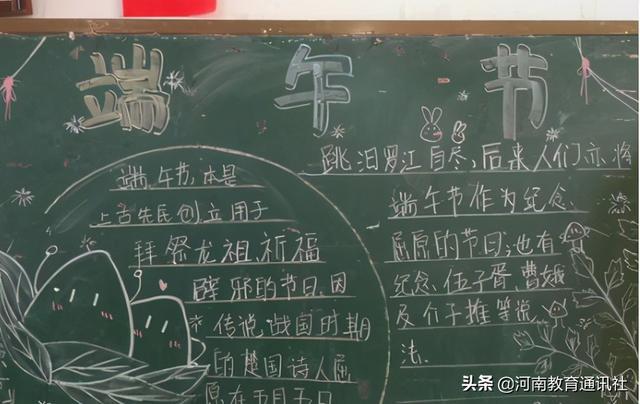 端午节
端午节,本是
上古先民创立用于
拜祭龙祖,祈福
辟邪的节日,因
传说战国时期
的楚国诗人屈
原在五月五日
跳汨罗江自尽,后来人们亦将
端午节作为纪念
屈原的节日;也有
纪念伍子胥、曹娥
及介子推等说
法.
头条 @河南教育通讯社